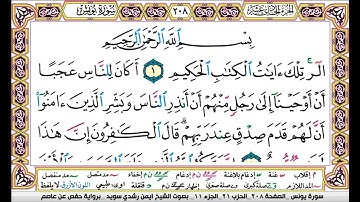 سورة يونس ٢٠٨ الجزء الحادي عشر
بِسْمِ ٱللَّهِ ٱلرَّحْمَٰنِ ٱلرَّحِيمِ
الٓر تِلْكَ ءَايَٰتُ ٱلْكِتَٰبِ ٱلْحَكِيمِ ١ أَكَانَ لِلنَّاسِ عَجَبًا
أَنْ أَوْحَيْنَآ إِلَىٰ رَجُلٍ مِّنْهُمْ أَنْ أَنذِرِ ٱلنَّاسَ وَبَشِّرِ ٱلَّذِينَ ءَامَنُوٓا۟
أَنَّ لَهُمْ قَدَمَ صِدْقٍ عِندَ رَبِّهِمْ قَالَ ٱلْكَٰفِرُونَ إِنَّ هَٰذَا
سورة يونس، الصفحة ٢٠٨، الحزب ٢١، الجزء ١١، بصوت الشيخ أيمن رشدي سويد برواية حفص عن عاصم